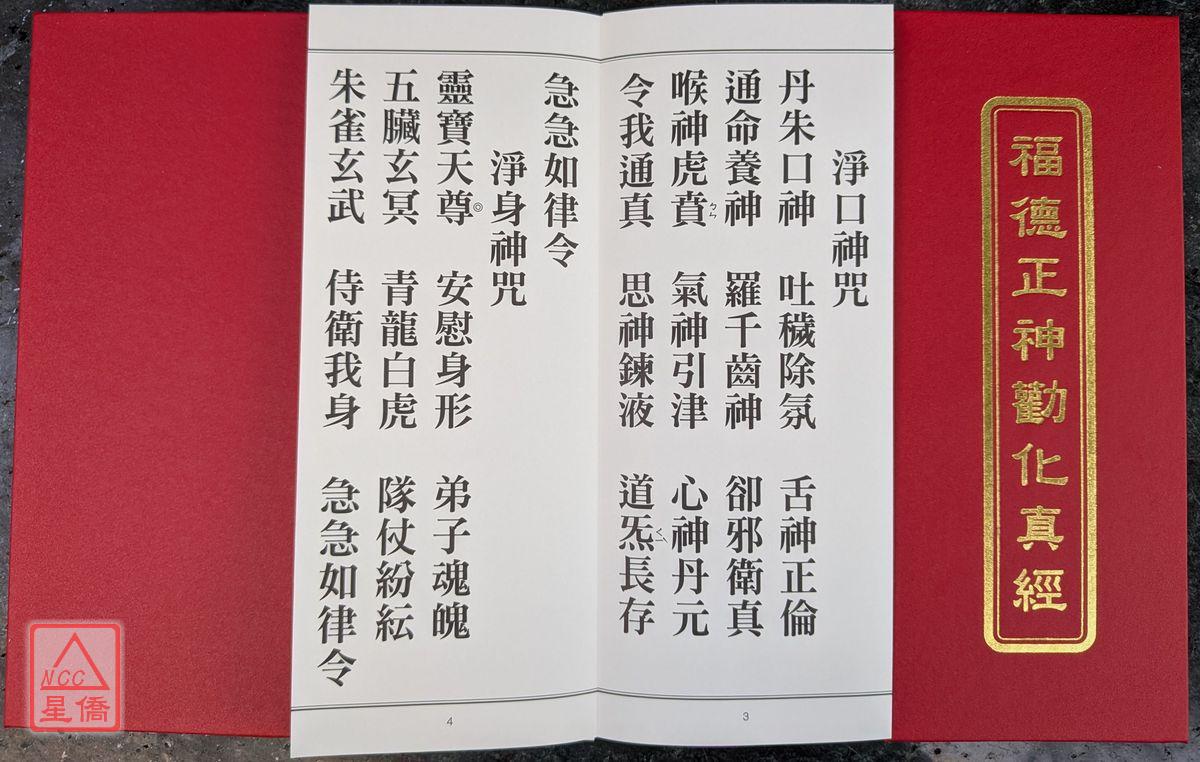 福德正神勸化真經
淨口神咒
丹朱口神 吐穢除氛 舌神正倫
通命養神 羅千齒神 卻邪衛真
喉神虎賁ㄅㄣ 氣神引津 心神丹元
令我通真 思神鍊液 道炁ㄑㄧˋ長存
3
急急如律令
淨身神咒
靈寶天尊◎ 安慰身形 弟子魂魄
五臟玄冥 青龍白虎 隊仗紛紜
朱雀玄武 侍衛我身 急急如律令
4
NCC
星僑